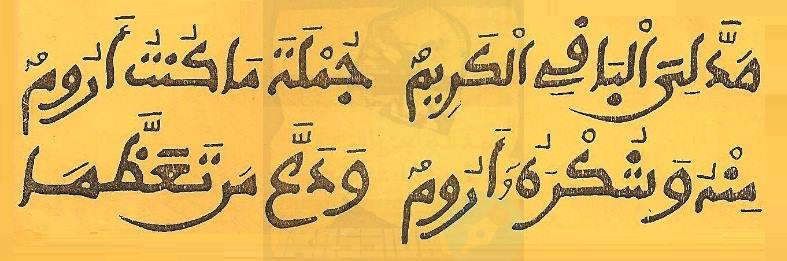 مَدَّ لِيَ الْبَاقِي الْكَرِيمُ جُمْلَةَ مَا كُنْتُ أَرُومُ
مِنْهُ وَشُكْرَهُ أَرُومُ وَدَعَّ مَن تَعَظَّمَا